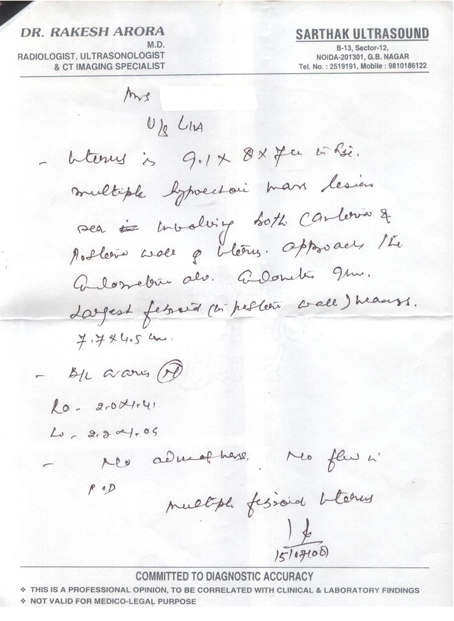 DR. RAKESH ARORA
M.D.
RADIOLOGIST, ULTRASONOLOGIST
& CT IMAGING SPECIALIST
SARTHAK ULTRASOUND
B-13, Sector-12,
NOIDA-201301, G.B. NAGAR
Tel. No. : 2519191, Mobile : 9810186122
Mrs
U/s L/A
- Uterus is 9.1 x 8 x 7 cm in size.
multiple hypoechoic mass lesion
seen involving both anterior &
Posterior wall of Uterus. approach the
Endometrium also. Endometrium 9mm.
Largest fibroid (in posterior wall) measures.
7.7 x 4.5 cm.
- B/L ovaries (N)
Ro - 2.0x1.41
Lo - 2.2x1.05
- No adnexal mass. No fluid in
POD
multiple fibroid Uterus
COMMITTED TO DIAGNOSTIC ACCURACY
❖ THIS IS A PROFESSIONAL OPINION, TO BE CORRELATED WITH CLINICAL & LABORATORY FINDINGS
❖ NOT VALID FOR MEDICO-LEGAL PURPOSE